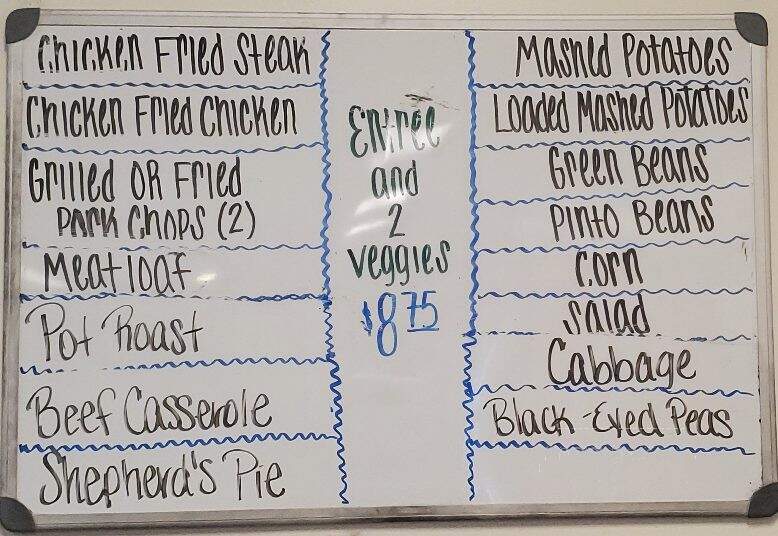 Chicken Fried Steak
Chicken Fried Chicken
Grilled OR Fried
Pork Chops (2)
Meatloaf
Pot Roast
Beef Casserole
Shepherd's Pie
Entree
and
2
veggies
$8.75
Mashed Potatoes
Loaded Mashed Potatoes
Green Beans
Pinto Beans
Corn
Salad
Cabbage
Black-Eyed Peas